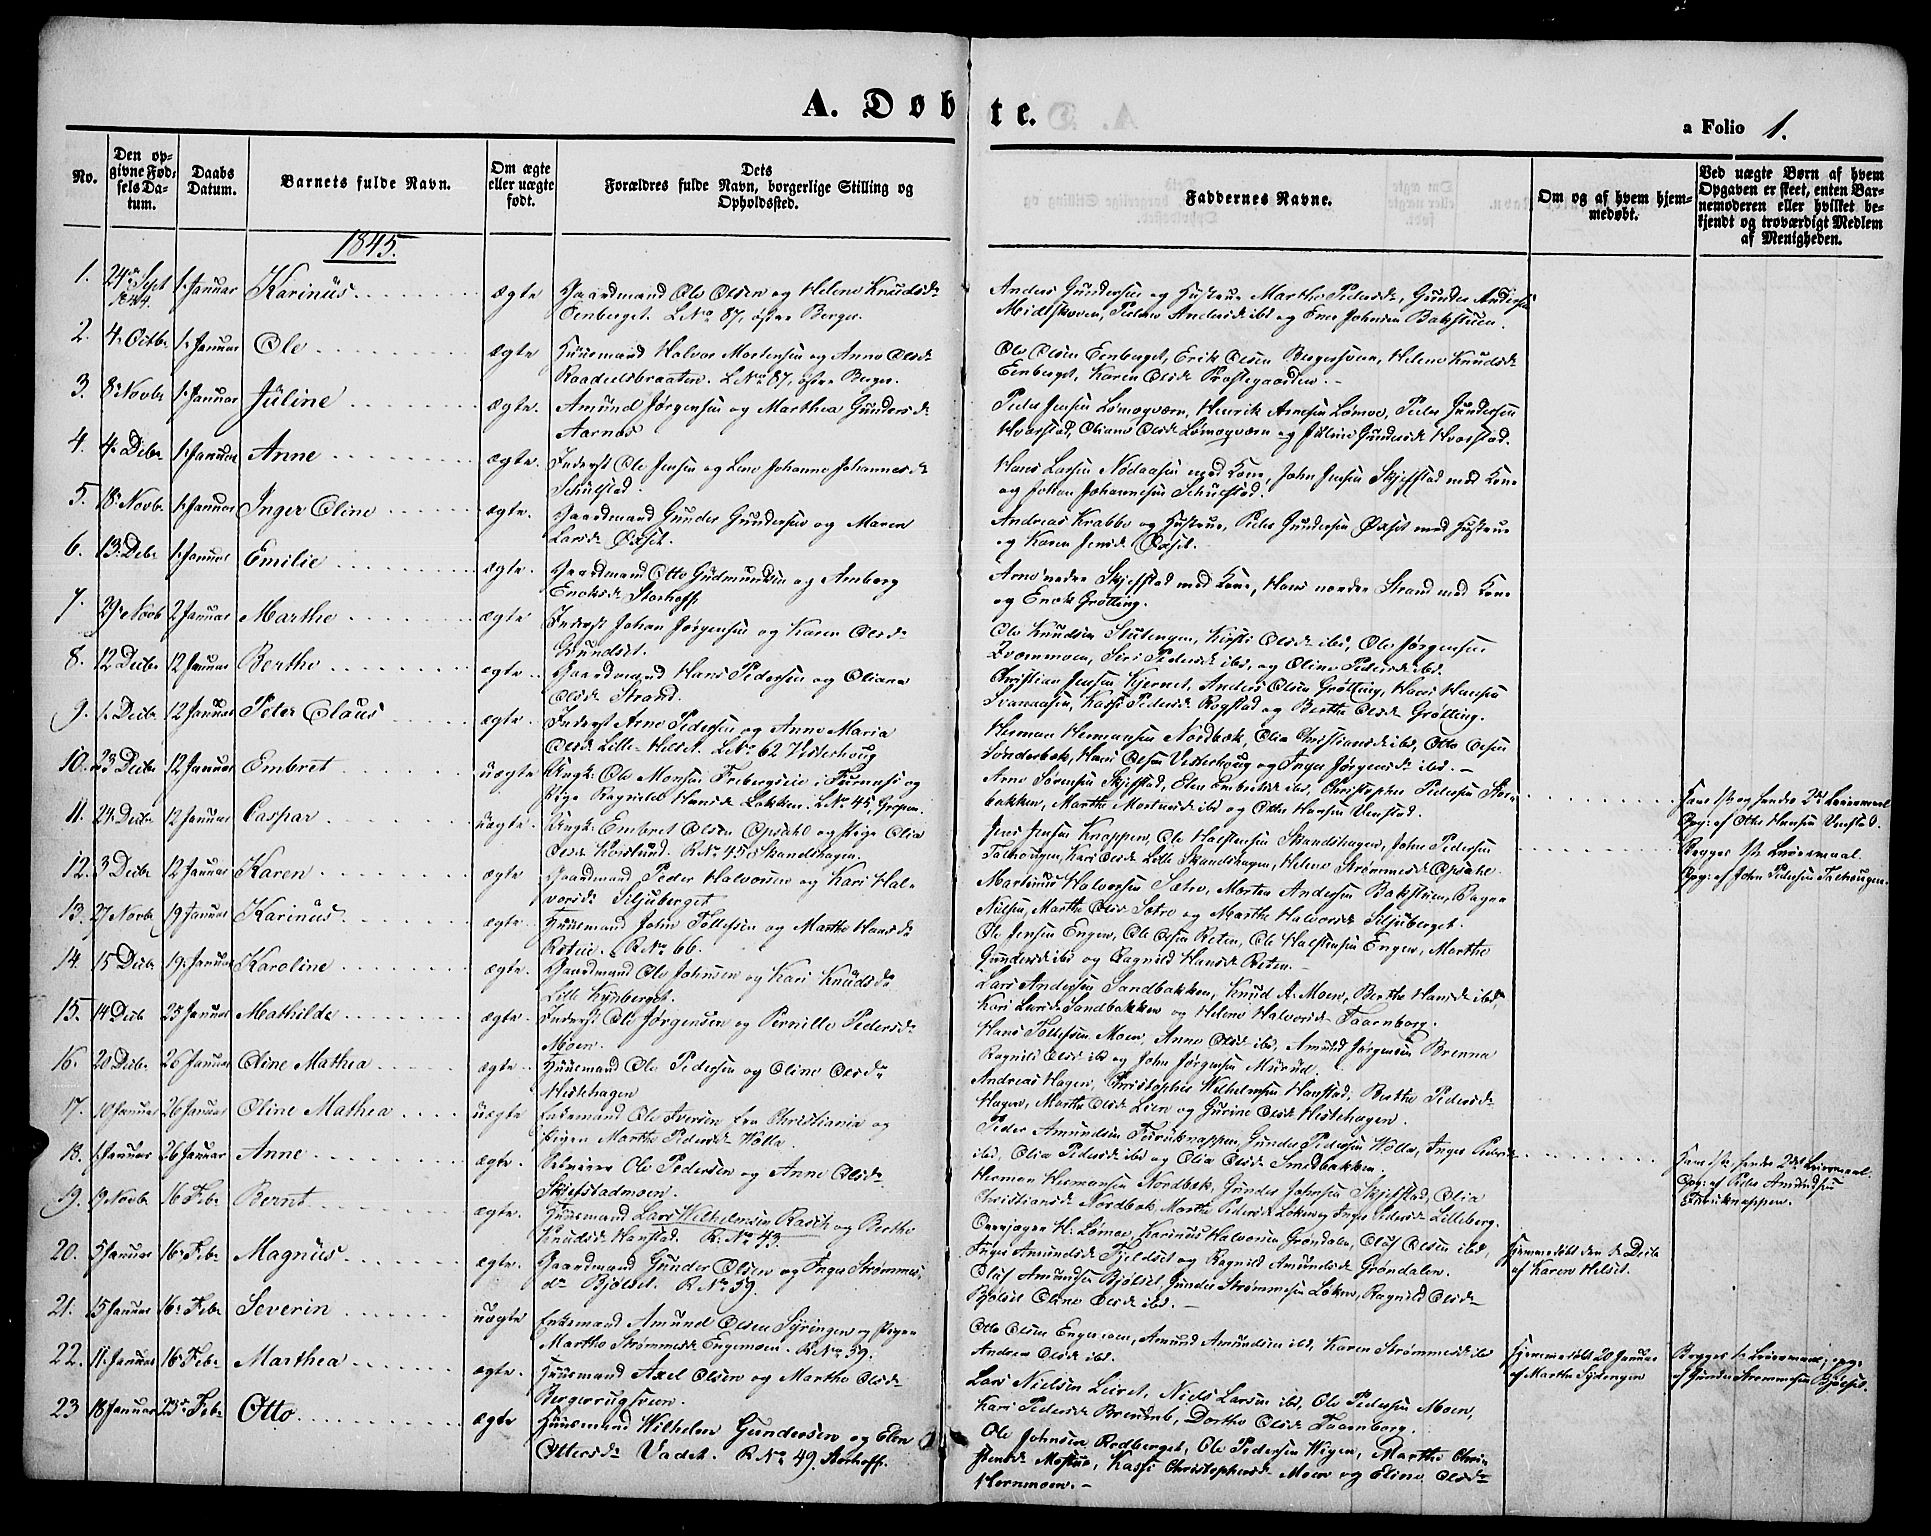 A. Døbte.
a Folio 1.
No.
Den op-
givne Fød-
sels Da-
tum.
Daabs
Datum.
Barnets fulde Navn.
Om ægte
eller uægte
født.
Dets
Forældres fulde Navn, borgerlige Stilling og
Opholdssted.
Faddernes Navne.
Om og af hvem hjem-
medøbt.
Ved uægte Børn af hvem
Opgaven er skeet, enten Bar-
nemoderen eller hvilket be-
kjendt og troværdigt Medlem
af Menigheden.
1845.
1. 24de Sept 1844. 1. Januar Karinus ægte Gaardmand Ole Olsen og Helene Knudsdr
Eenberget. L.No 87, østre Berger.
Anders Gundersen og Hustrue Marthe Pedersdr, Gunder Andersen
Midtskoven, Peder Andersen ibd og Even Johnsen Bakstuen.
2. 4. Octbr 1. Januar Ole ægte Huusmand Halvor Mortensen og Anne Olsdr
Raadeelsbraaten. L.No 87, østre Berger.
Ole Olsen Eenberget, Erik Olsen Bergersveen, Helene Knudsdr
Eenberget, Karen Olsdr Præstegaarden.
3. 8. Novbr 1. Januar Juline ægte. Amund Jørgensen og Marthea Gundersdr
Aarnæs
Peder Jensen Lømogværn, Henrik Arnesen Lømoe, Peder Gundersen
Hvarstad, Oliane Olsdr Lømogværn og Juline Gundersdr Hvarstad.
4. 4. Decbr 1. Januar Anne ægte. Inderst Ole Jensen og Lene Johanne Johannesdr
Schulstad.
Hans Larsen Nodaasen med Kone, John Jensen Skjefstad med Kone
og Johan Johannesen Schulstad.
5. 18. Novbr 1. Januar Inger Oline ægte. Gaardmand Gunder Gundersen og Maren
Larsdr Øxset.
Andreas Krabbe og Hustrue, Peder Gundersen Øxset med Hustrue
og Karen Jensdr Øxset.
6. 13. Decbr 1. Januar Emilie ægte. Gaardmand Otto Gudmundsen og Amborg
Enoksdr Storhoff.
Arne nedre Skjefstad med Kone, Hans nordre Strand med Kone
og Enok Grøtting.
7. 29. Novb 2 Januar Marthe ægte Inderst Johan Jørgensen og Karen Olsdr
Grundset.
Ole Knudsen Stutengen, Kirsti Olsdr ibd, Ole Jørgensen
Siri Pedersdr ibd, og Oline Pedersdr ibd.
8. 12 Decbr 12 Januar Berthe ægte Gaardmand Hans Pedersen og Oliane
Olsdr Strand.
Christian Jensen Kjernet, Anders Olsen Grøtting, Hans Hansen
Svenaasen, Kasse Pedersdr Rogstad og Berthe Olsdr Grøtting.
9. 1. Decbr 12 Januar Peter Claus ægte Inderst Arne Pedersen og Anne Maria
Olsdr Lille-Helset. L.No 62 Vesterhoug
Herman Hermansen Nordbæk, Olia Christiansdr ibd, Otto Olsen
Sønderbæk, Hans Olsen Vesterhoug og Inger Jørgensdr ibd.
10. 23 Decbr 12 Januar Embret uægte Ungk: Ole Monsen Fribergseie i Furnæs og
Pige Ragnild Hansdr Løkken. L.No 45 Grapen.
Arne Sørensen Skjefstad, Elen Embretsdr ibd, Christopher Pedersen Stor-
bakken, Marthe Mortensdr ibd og Otto Hansen Venstad.
Hans 1ste og hendes 2det Leiermaal.
Opg: af Otto Hansen Venstad.
11. 24. Decbr 12 Januar Caspar uægte Ungk: Embret Olsen Opsahl og Pige Olia
Olsdr Korslund. R.No 45 Skandshagen.
Jens Jensen Knappen, Ole Halstensen Skandshagen, John Pedersen
Talhougen, Kari Olsdr Lille Skandshagen, Helene Strømmesdr Opsahl.
Begges 1ste Leiermaal.
Opg: af John Pedersen Talhougen.
12. 3 Decbr 12 Januar Karen ægte Gaardmand Peder Halvorsen og Kari Hal-
vorsdr Siljuberget
Martinus Halvorsen Sætre, Morten Andersen Bakstuen, Bagge
Nilsen, Marthe Olsdr Sætre og Marthe Halvorsdr Siljuberget.
13. 27 Novbr 19 Januar Karinus ægte Huusmand John Tollefsen og Marthe Hansdr
R.No 66.
Ole Jensen Engen, Ole Olsen Reten, Ole Halstensen Engen, Marthe
Gundersdr ibd og Ragnild Hansdr Reten.
14. 15 Decbr 19. Januar Karoline ægte. Gaardmand Ole Johnsen og Kari Knudsdr
Lille Kynberget.
Lars Andersen Sandbakken, Knud A. Moen, Berthe Hansdr ibd
Kari Larsdr Sandbakken og Helene Halvorsdr Taarnborg.
15. 14 Decb 25 Januar Mathilde ægte Inderst Ole Jørgensen og Pernille Pedersdr
Moen.
Hans Tollefsen Moen, Anne Olsdr ibd, Amund Jørgensen Brenna
Ragnild Olsdr ibd og John Jørgensen Mürud.
16. 20 Decbr 26 Januar Oline Mathea ægte Huusmand Ole Pedersen og Oline Olsdr
Histehagen
Andreas Hagen, Christopher Wilhelmsen Hanstad, Berthe Pedersdr
Hagen, Marthe Olsdr Lien og Gurine Olsdr Histehagen.
17. 10 Januar 26 Januar Oline Mathea uægte Enkemand Ole Iversen fra Christiania og
Pigen Marthe Pedersdr Wolle.
Peder Amundsen Furuknappen, Gunder Pedersen Wolle, Inger Pedersdr
ibd, Olia Pedersdr ibd og Olia Olsdr Smedbakken.
Hans 1ste, hendes 2det Leiermaal.
Opg: af Peder Amundsen
Furuknappen.
18. 1. Januar 26 Januar Anne ægte. Ole Pedersen og Anne Olsdr
Skjefstadmoen.
Herman Hermansen Nordbæk, Gunder Johnsen Skjefstad, Olia
Christiansdr Nordbæk, Marthe Pedersdr Løken og Inger Pedersdr Lilleberg.
19. 19 Novbr 16 Febr Bernt ægte. Huusmand Lars Wilhelmsen Rasch og Berthe
Knudsdr Hanstad. R.No 43.
H. Lømoe, Karinus Halvorsen Grøndalen, Oluf Olsen ibd,
Inger Amundsdr Fjeldset og Ragnild Amundsdr Grøndalen.
Hjemmedøbt den 1. Decbr
af Karen Helset.
20. 5 Januar 16. Febr Magnus ægte. Gaardmand Gunder Olsen og Inger Strømmes-
dr Bjølset. R.No 59.
Oluf Amundsen Bjølset, Gunder Strømmesen Løken, Ragnild Olsdr
Bjølset Oline Olsdr ibd.
21. 15 Januar 16. Febr Severin uægte Enkemand Amund Olsen Syringen og Pigen
Marthe Strømmesdr Engemoen. R.No 59.
Otto Olsen Engemoen, Amund Amundsen ibd, Karen Strømmesdr ibd
Andrea Olsdr ibd.
Hjemmedøbt 20 Januar
af Marthe Syringen
Begges 1ste Leiermaal; opg:
af Gunder Strømmesen Bjølset.
22. 11. Januar 16 Febr Marthea ægte. Huusmand Axel Olsen og Marthe Olsdr
Bergerugsveen.
Lars Nielsen Leiret, Niels Larsen ibd, Ole Pedersen Moen,
Kari Pedersdr Brenne, Dorthe Olsdr Taarnborg.
23 18 Januar 23de Febr Otto ægte Huusmand Wilhelm Gundersen og Elen
Ottersdr Vadet. R.No 49 Storhoff.
Ole Johnsen Rodberget, Ole Pedersen Wigen, Marthe Chri-
stensdr Mostue, Kasse Christophersdr Moen og Eline Olsdr
Hornmoen.